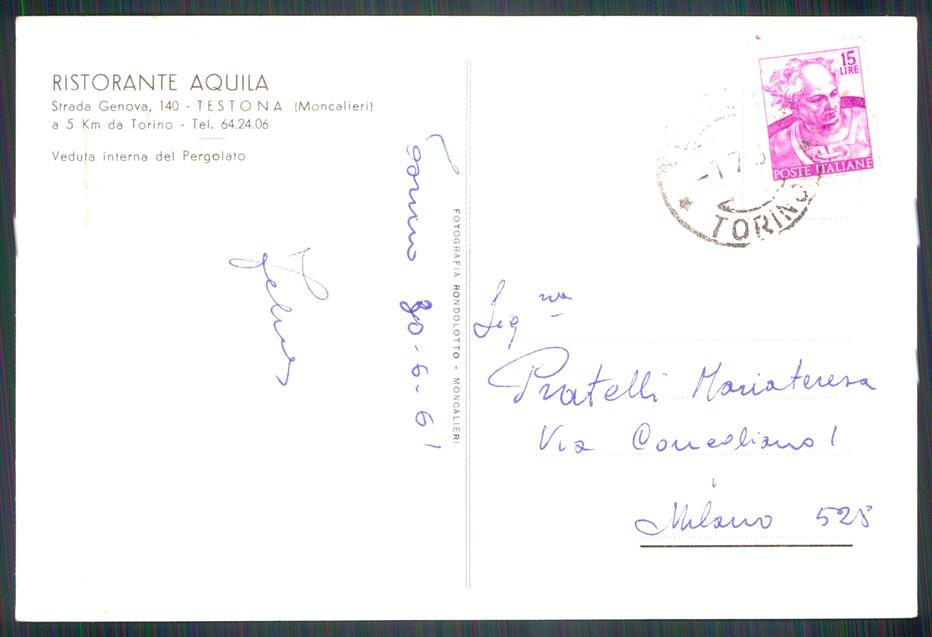 RISTORANTE AQUILA
Strada Genova, 140 - TESTONA (Moncalieri)
a 5 Km da Torino - Tel. 64.24.06
Veduta interna del Pergolato
30-6-61
FOTOGRAFIA RONDOLOTTO - MONCALIERI
15
LIRE
POSTE ITALIANE
-1 7
TORINO
Sig.na
Pratelli Mariateresa
Via Conegliano 1
Milano 528